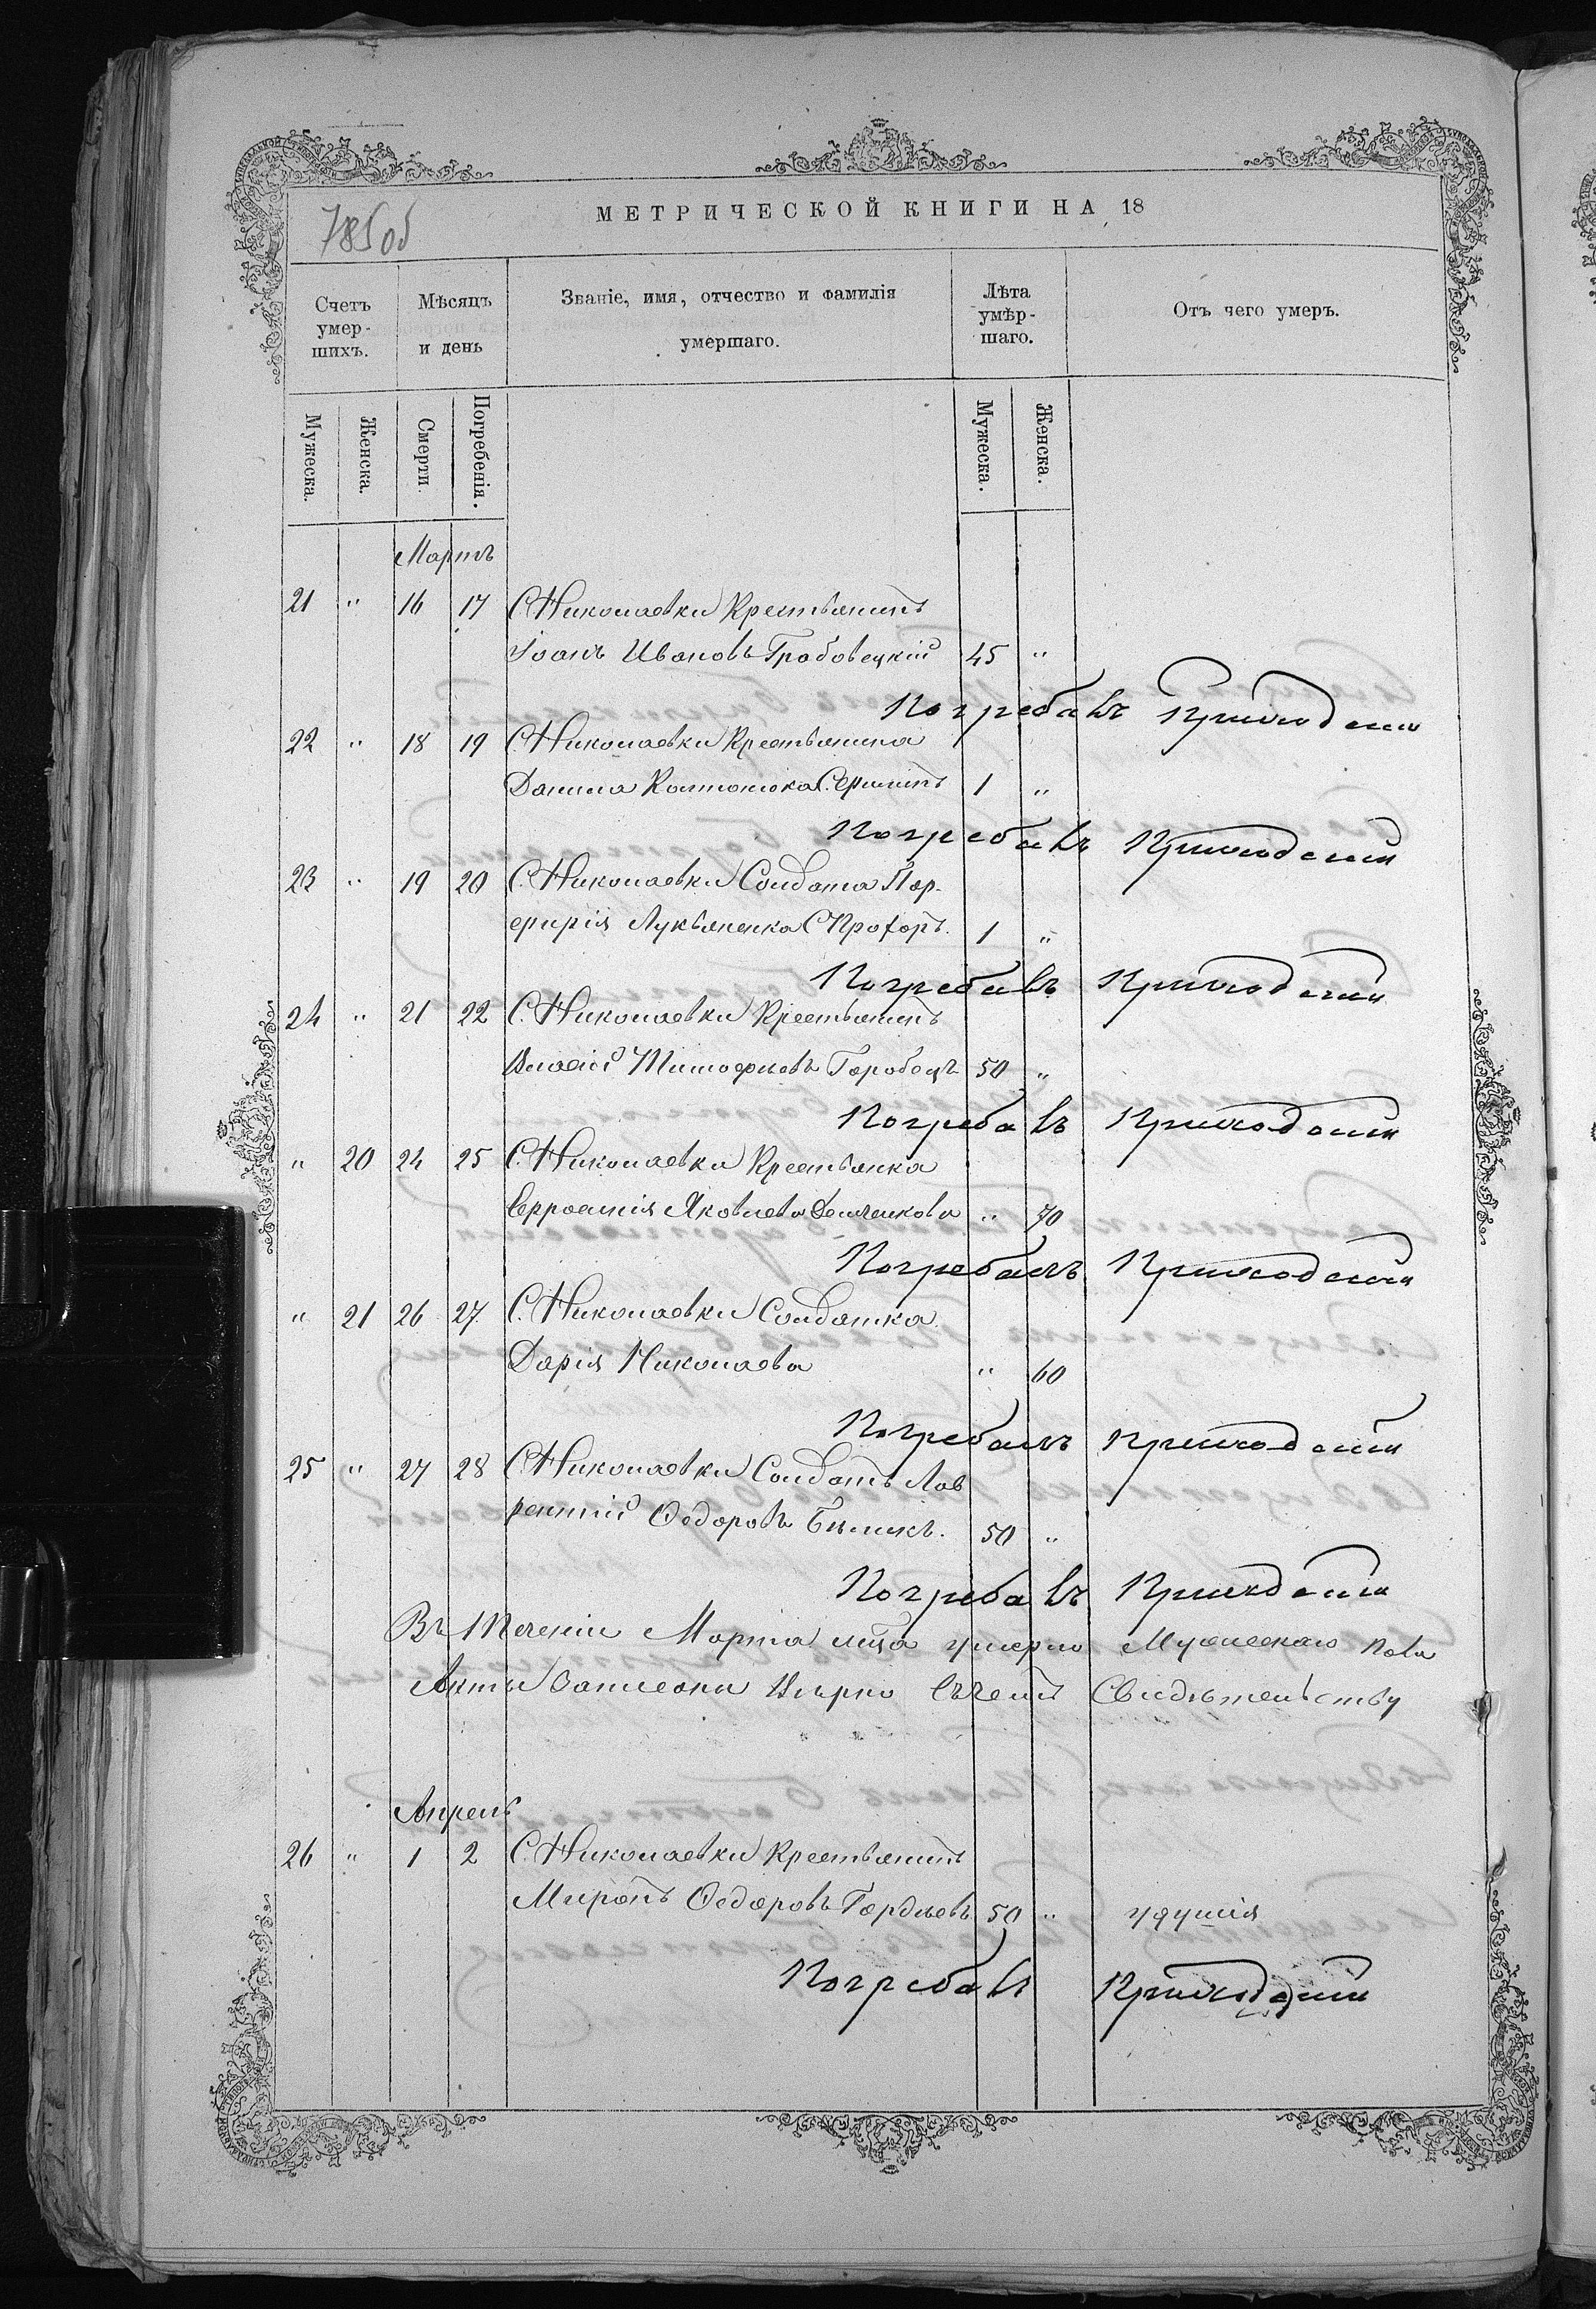 785об
МЕТРИЧЕСКОЙ КНИГИ НА 18
Счетъ умер-шихъ.
Мѣсяцъ и день
Званіе, имя, отчество и фамилія умершаго.
Лѣта умѣр-шаго.
Отъ чего умеръ.
Мужеска.
Женска.
Смерти.
Погребенія.
Мужеска.
Женска.
Мартъ
21 " 16 17 С. Николаевки Крестьянинъ
Іоанъ Ивановъ Грабовецкій 45 "
Погребалъ Приходскій
22 " 18 19 С. Николаевки Крестьянина
Данила 1 "
Погребалъ Приходскій
23 " 19 20 С. Николаевки Солдата Пор-
фирія Лукьяненка С. Прохоръ. 1 "
Погребалъ Приходскій
24 " 21 22 С. Николаевки Крестьянинъ
Власій Тимофіевъ Горобецъ 50 "
Погребалъ Приходскій
" 20 24 25 С. Николаевки Крестьянка
Яковлева " 70
Погребалъ Приходскій
" 21 26 27 С. Николаевки Солдатка
Дарія Николаева " 60
Погребалъ Приходскій
25 " 27 28 С. Николаевки Солдатъ Лав
рентій Ѳедоровъ Биликъ. 50 "
Погребалъ Приходскій
Въ теченіи Марта м-ца умерло Мужескаго пола
Акты записаны Вѣрно въ чемъ Свидѣтельствую
Апрель
26 " 1 2 С. Николаевки Крестьянинъ
Миронъ Ѳедоровъ Гордіевъ 50 " удушія
Погребалъ Приходскій